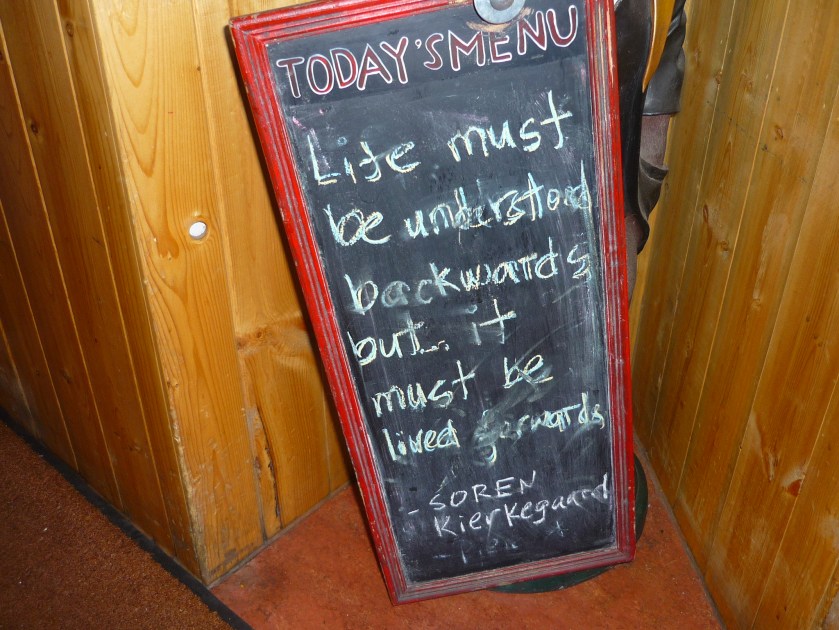 TODAY'S MENU
Life must
be understood
backwards
but it
must be
lived forwards
- SOREN
Kierkegaard